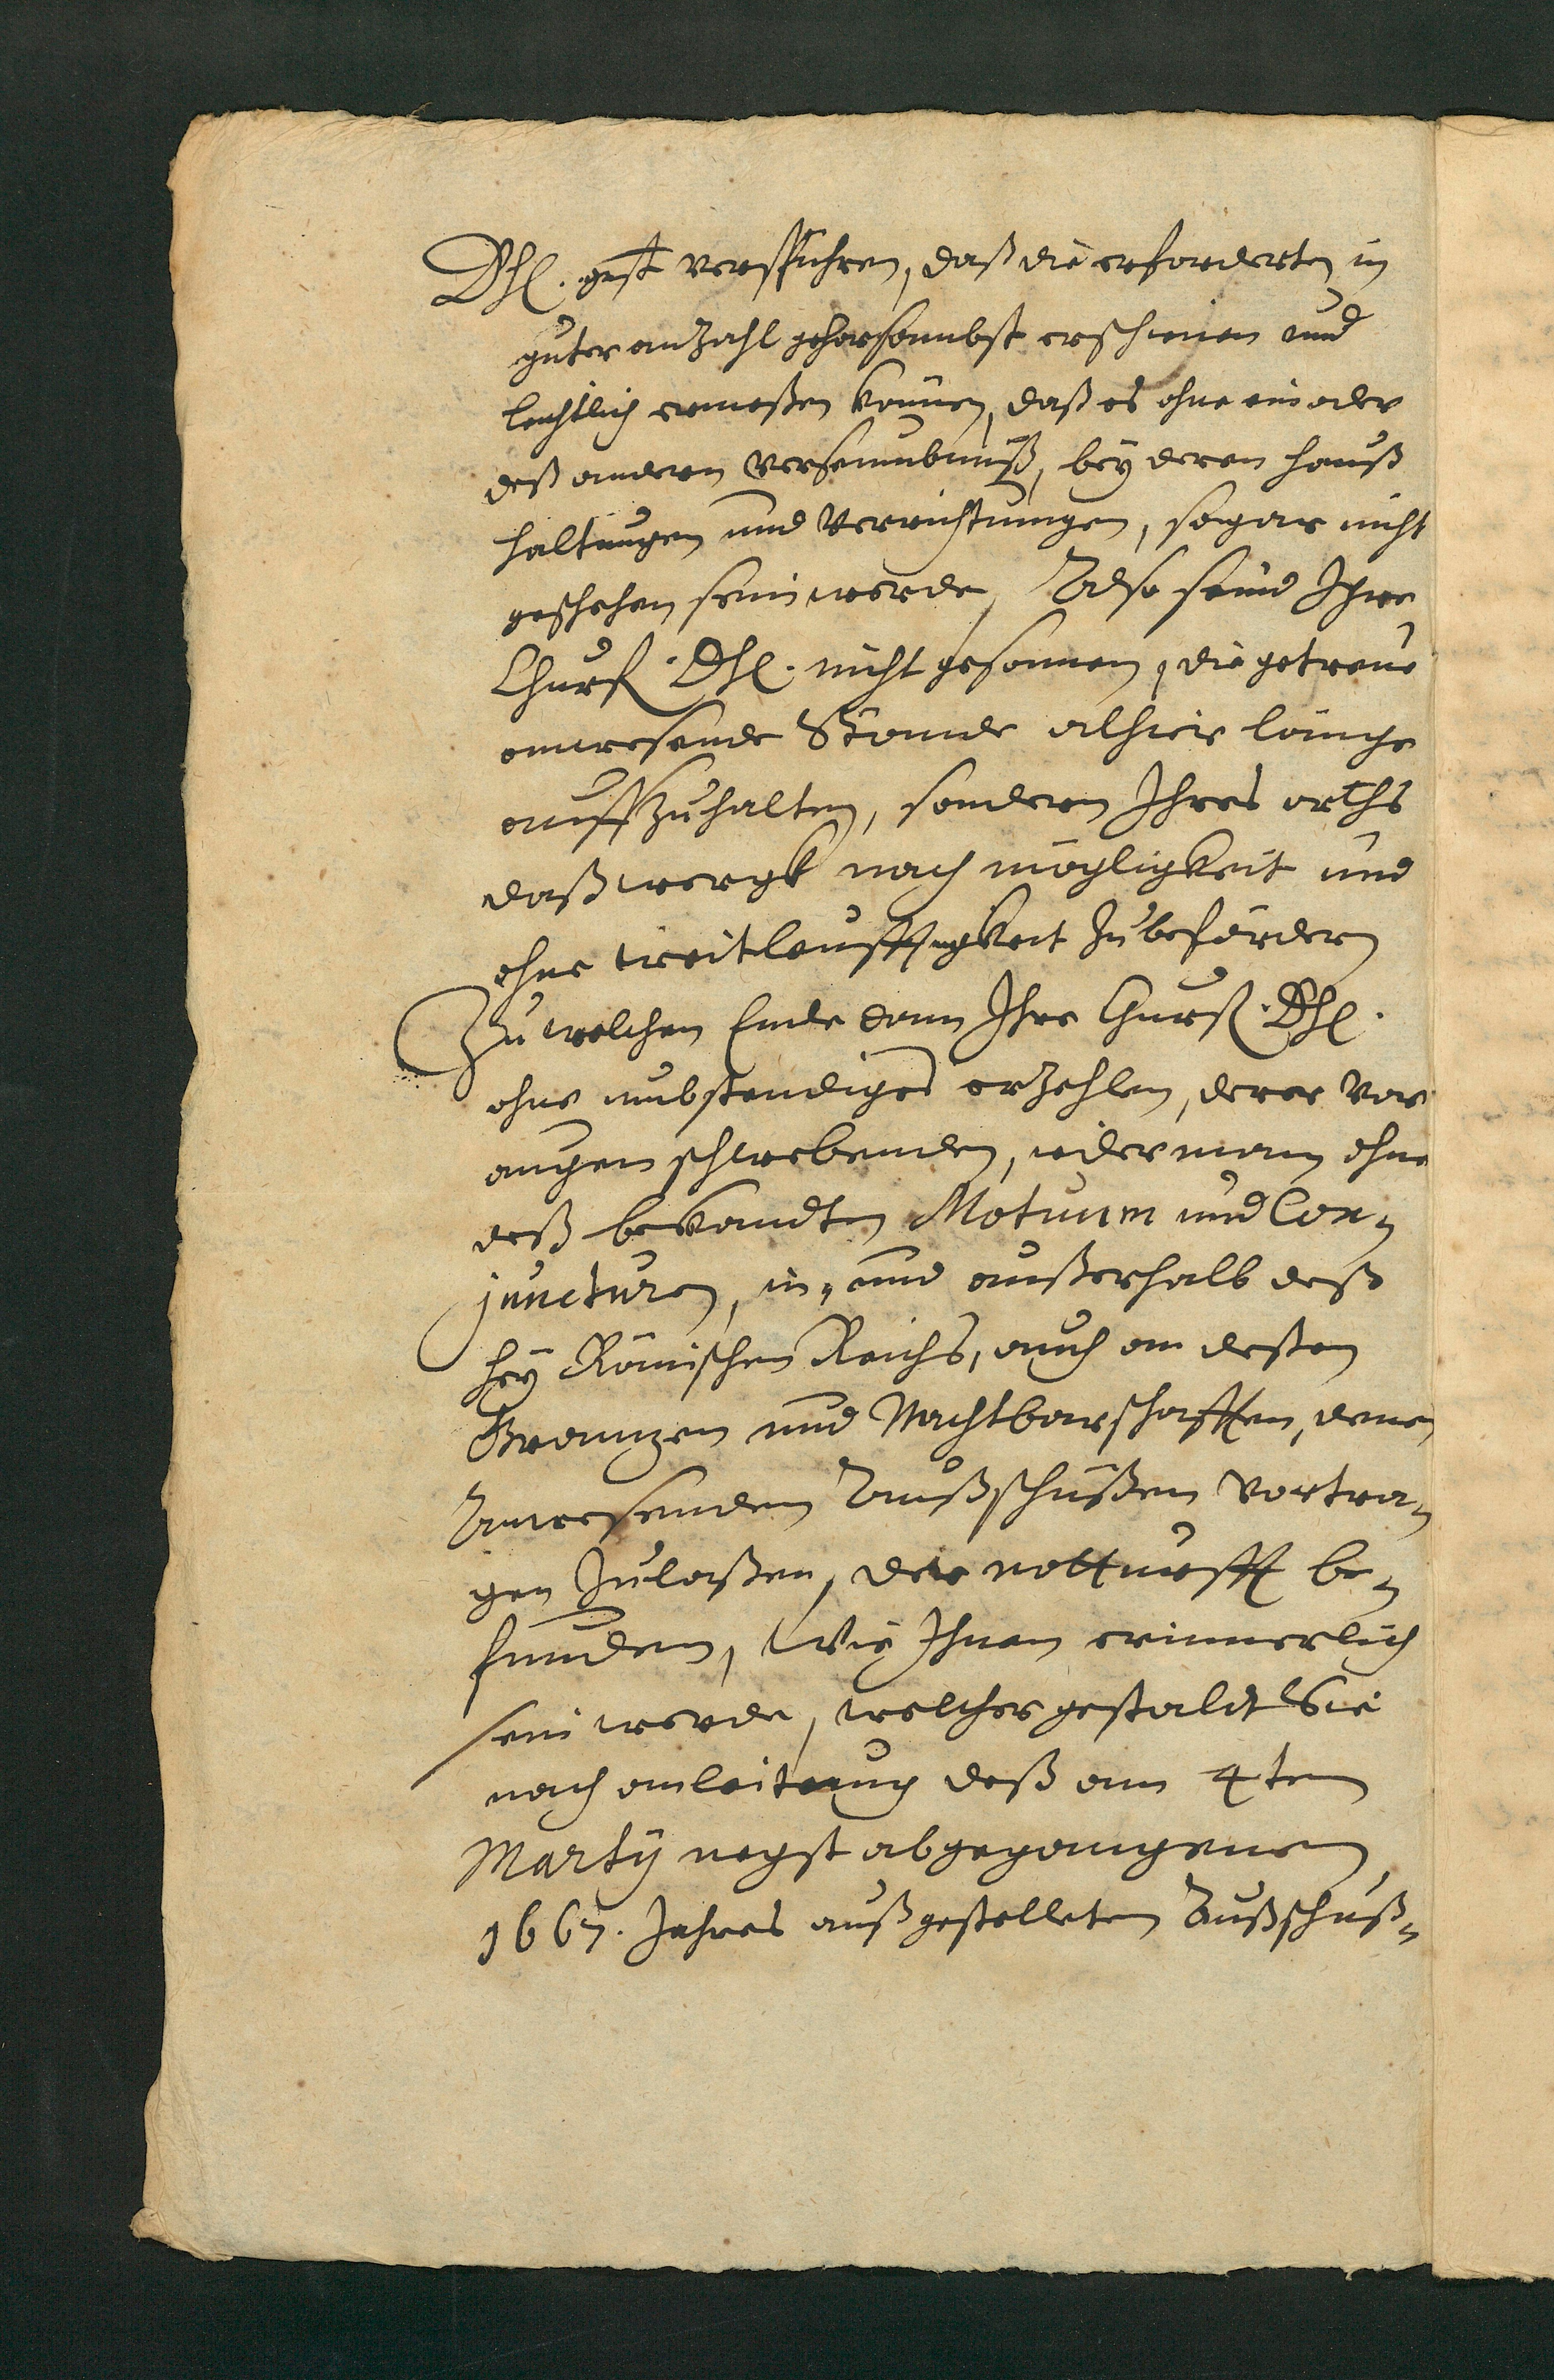 Dhl. gnst verspühren, daß die erforderten in
guter anzahl gehorsambst erschienen und
leichtlich ermeßen können, daß es ohne ein oder
deß andern versäumbnüß, bey deren hauß
haltungen und Verrichtungen, sogar nicht
geschehen sein werde, Also seind Ihre
Churf. Dhl. nicht gesonnen, die getreue
anwesende Stände alhier lange
auffzuhalten, sondern Ihres orths
daß wergk nach mögligkeit und
ohne weitleufftigkeit zubefördern
Zu welchen Ende dann Ihre Churf. Dhl.
ohne umbstendiges erzehlen, derer vor
augen schwebenden, iderman ohne
deß bekandten Motuum und Con-
juncturen, in- und außerhalb deß
heyl Römischen Reichs, auch an deßen
Gränzen und Nachtbarschafften, denen
Anwesenden Außschüßen vortra-
gen zulaßen, der notturfft be-
funden, Wie Ihnen erinnerlich
sein werde, welcher gestaldt Sie
nach anleitung deß am 4ten
Martÿ negst abgegangenen
1667. Jahres außgestelleten Außschuß-